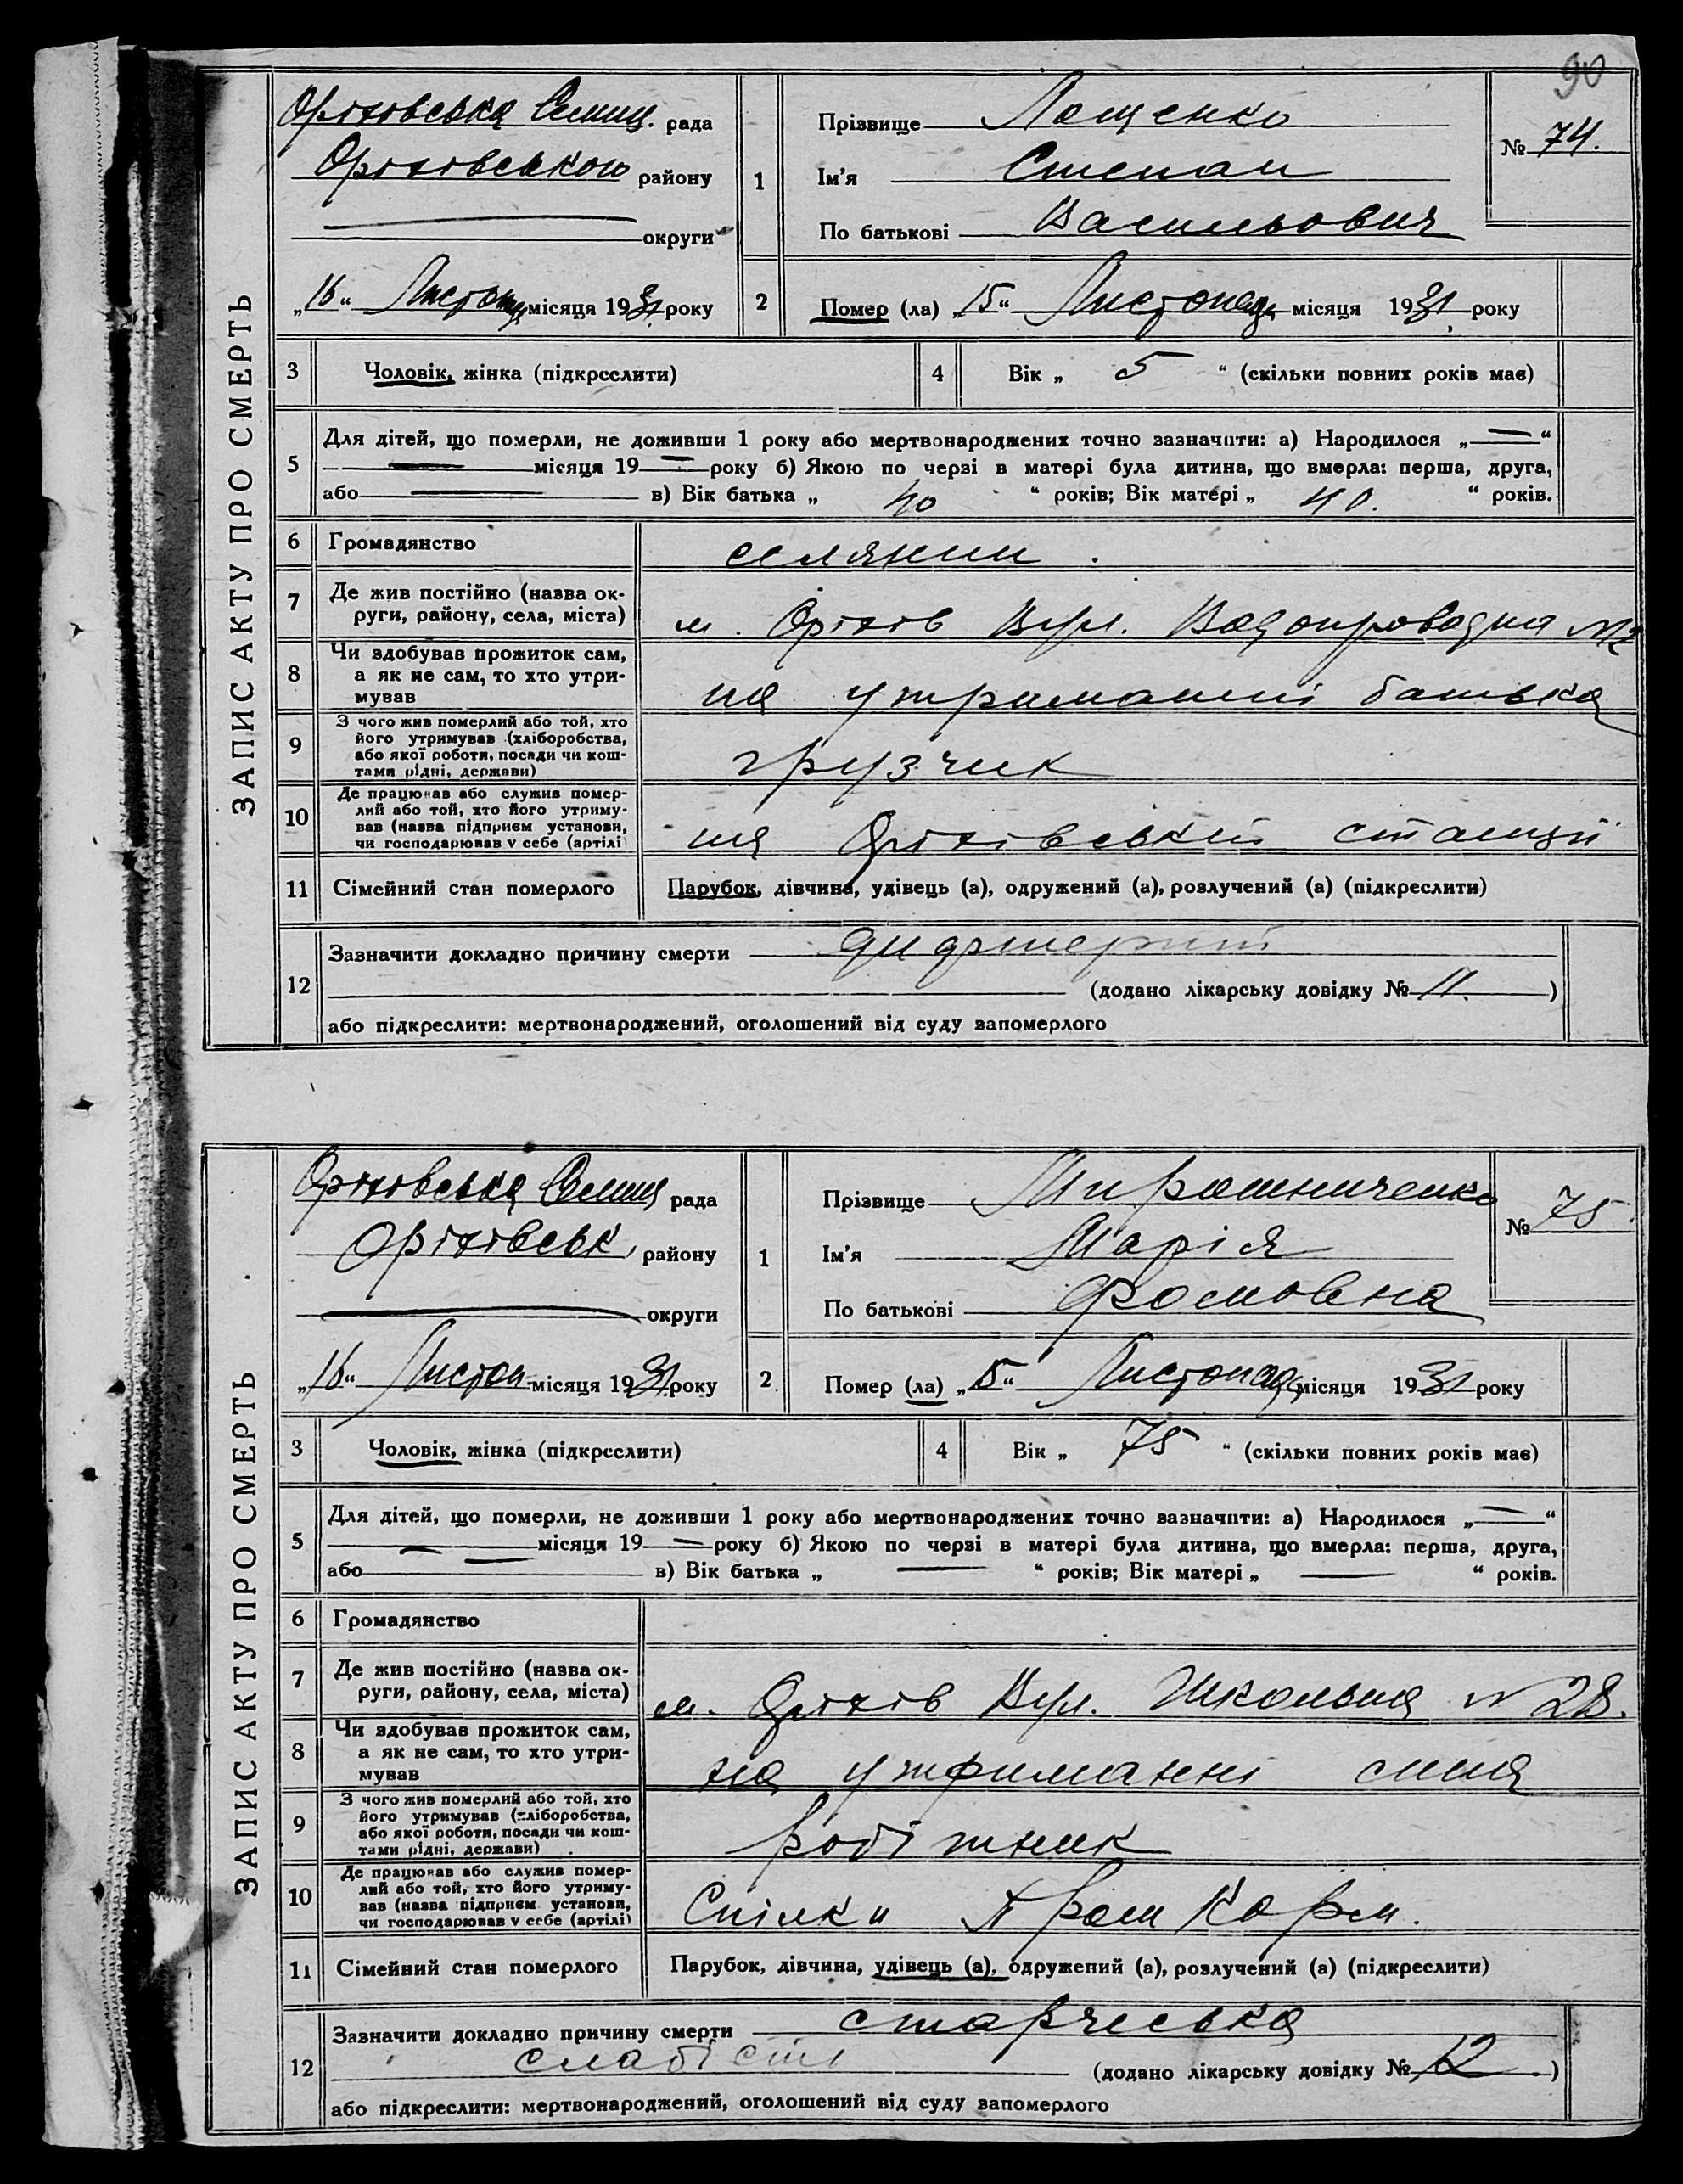 90
ЗАПИС АКТУ ПРО СМЕРТЬ
Оріхівська Селищ. рада
Оріхівського району
округи
„16“ Листопад місяця 1931 року
1
Прізвище Лащенко
Ім'я Степан
По батькові Васильович
№ 74.
2
Помер (ла) „15“ Листопад місяця 1931 року
3 Чоловік, жінка (підкреслити)
4 Вік „ 5 “ (скільки повних років має)
5 Для дітей, що померли, не доживши 1 року або мертвонароджених точно зазначити: а) Народилося „—“
— місяця 19—року б) Якою по черзі в матері була дитина, що вмерла: перша, друга,
або — в) Вік батька „ 40 “ років; Вік матері „ 40. “ років.
6 Громадянство селянин.
7 Де жив постійно (назва ок-
руги, району, села, міста) м. Оріхів Вул. Водопроводна №
8 Чи здобував прожиток сам,
а як не сам, то хто утри-
мував на утриманні батька
9 З чого жив померлий або той, хто
його утримував (хліборобства,
або якої роботи, посади чи кош-
тами рідні, держави) грузчик
10 Де працював або служив помер-
лий або той, хто його утриму-
вав (назва підприєм установи,
чи господарював у себе (артілі) на Оріхівській станції
11 Сімейний стан померлого Парубок, дівчина, удівець (а), одружений (а), розлучений (а) (підкреслити)
12 Зазначити докладно причину смерти дифтерит
(додано лікарську довідку № 11. )
або підкреслити: мертвонароджений, оголошений від суду запомерлого
ЗАПИС АКТУ ПРО СМЕРТЬ
Оріхівська Селищ рада
Оріхівськ району
округи
„16“ Листоп місяця 1931 року
1
Прізвище Мирошниченко
Ім'я Марія
По батькові Фомовна
№ 75.
2
Помер (ла) „15“ Листопад місяця 1931 року
3 Чоловік, жінка (підкреслити)
4 Вік „ 75 “ (скільки повних років має)
5 Для дітей, що померли, не доживши 1 року або мертвонароджених точно зазначити: а) Народилося „—“
— місяця 19—року б) Якою по черзі в матері була дитина, що вмерла: перша, друга,
або — в) Вік батька „ — “ років; Вік матері „ — “ років.
6 Громадянство
7 Де жив постійно (назва ок-
руги, району, села, міста) м. Оріхів Вул. Школьна № 28.
8 Чи здобував прожиток сам,
а як не сам, то хто утри-
мував на утриманні сина
9 З чого жив померлий або той, хто
його утримував (хліборобства,
або якої роботи, посади чи кош-
тами рідні, держави) робітник
10 Де працював або служив помер-
лий або той, хто його утриму-
вав (назва підприєм установи,
чи господарював у себе (артілі) Спілки
11 Сімейний стан померлого Парубок, дівчина, удівець (а), одружений (а), розлучений (а) (підкреслити)
12 Зазначити докладно причину смерти старческа
слабість (додано лікарську довідку № 12 )
або підкреслити: мертвонароджений, оголошений від суду запомерлого